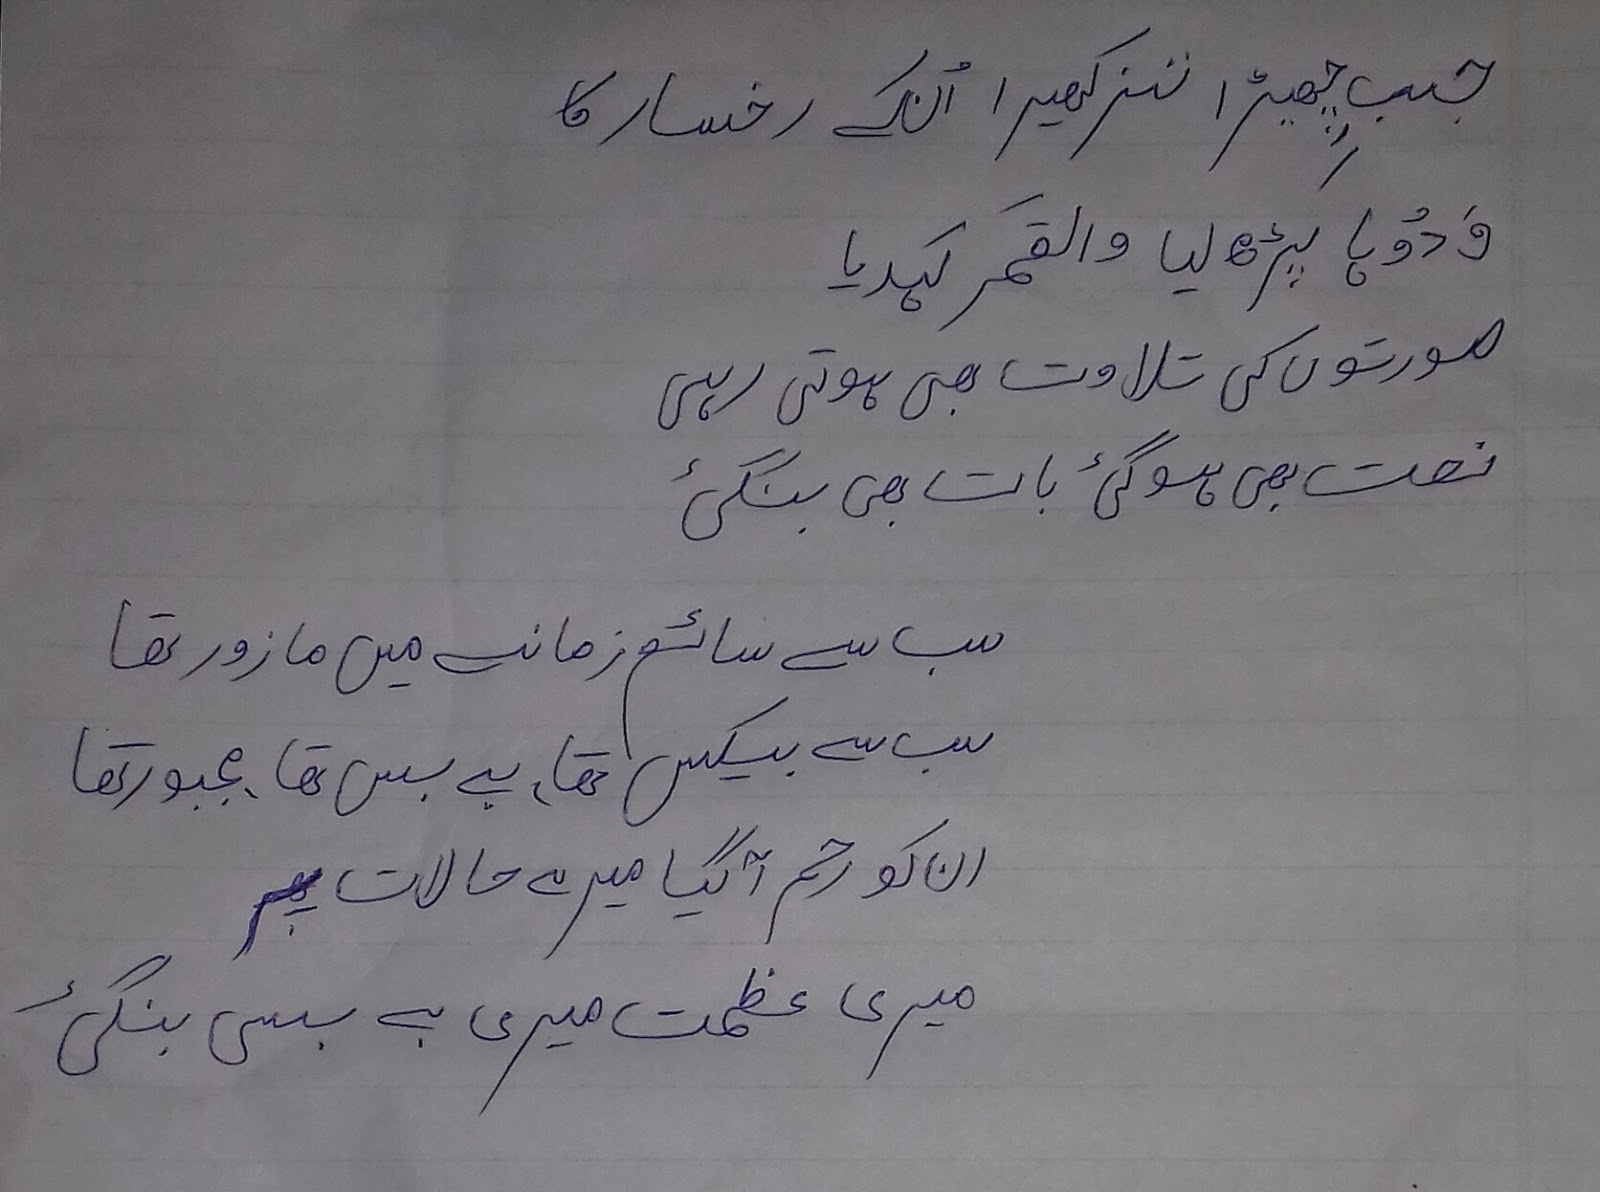 جب چھیڑا تزکھیرا اُنکے رخسار کا
وَدُوہا پڑھ لیا والقمَر کہدیا
صورتوں کی تلاوت بھی ہوتی رہی
نعت بھی ہوگئ بات بھی بنگئ
سب سے سائم زمانے میں مازور تھا
سب سے بیکس تھا، بے بس تھا، مجبور تھا
ان کو رحم آگیا میرے حالات پر
میری عظمت میری بے بسی بنگئ